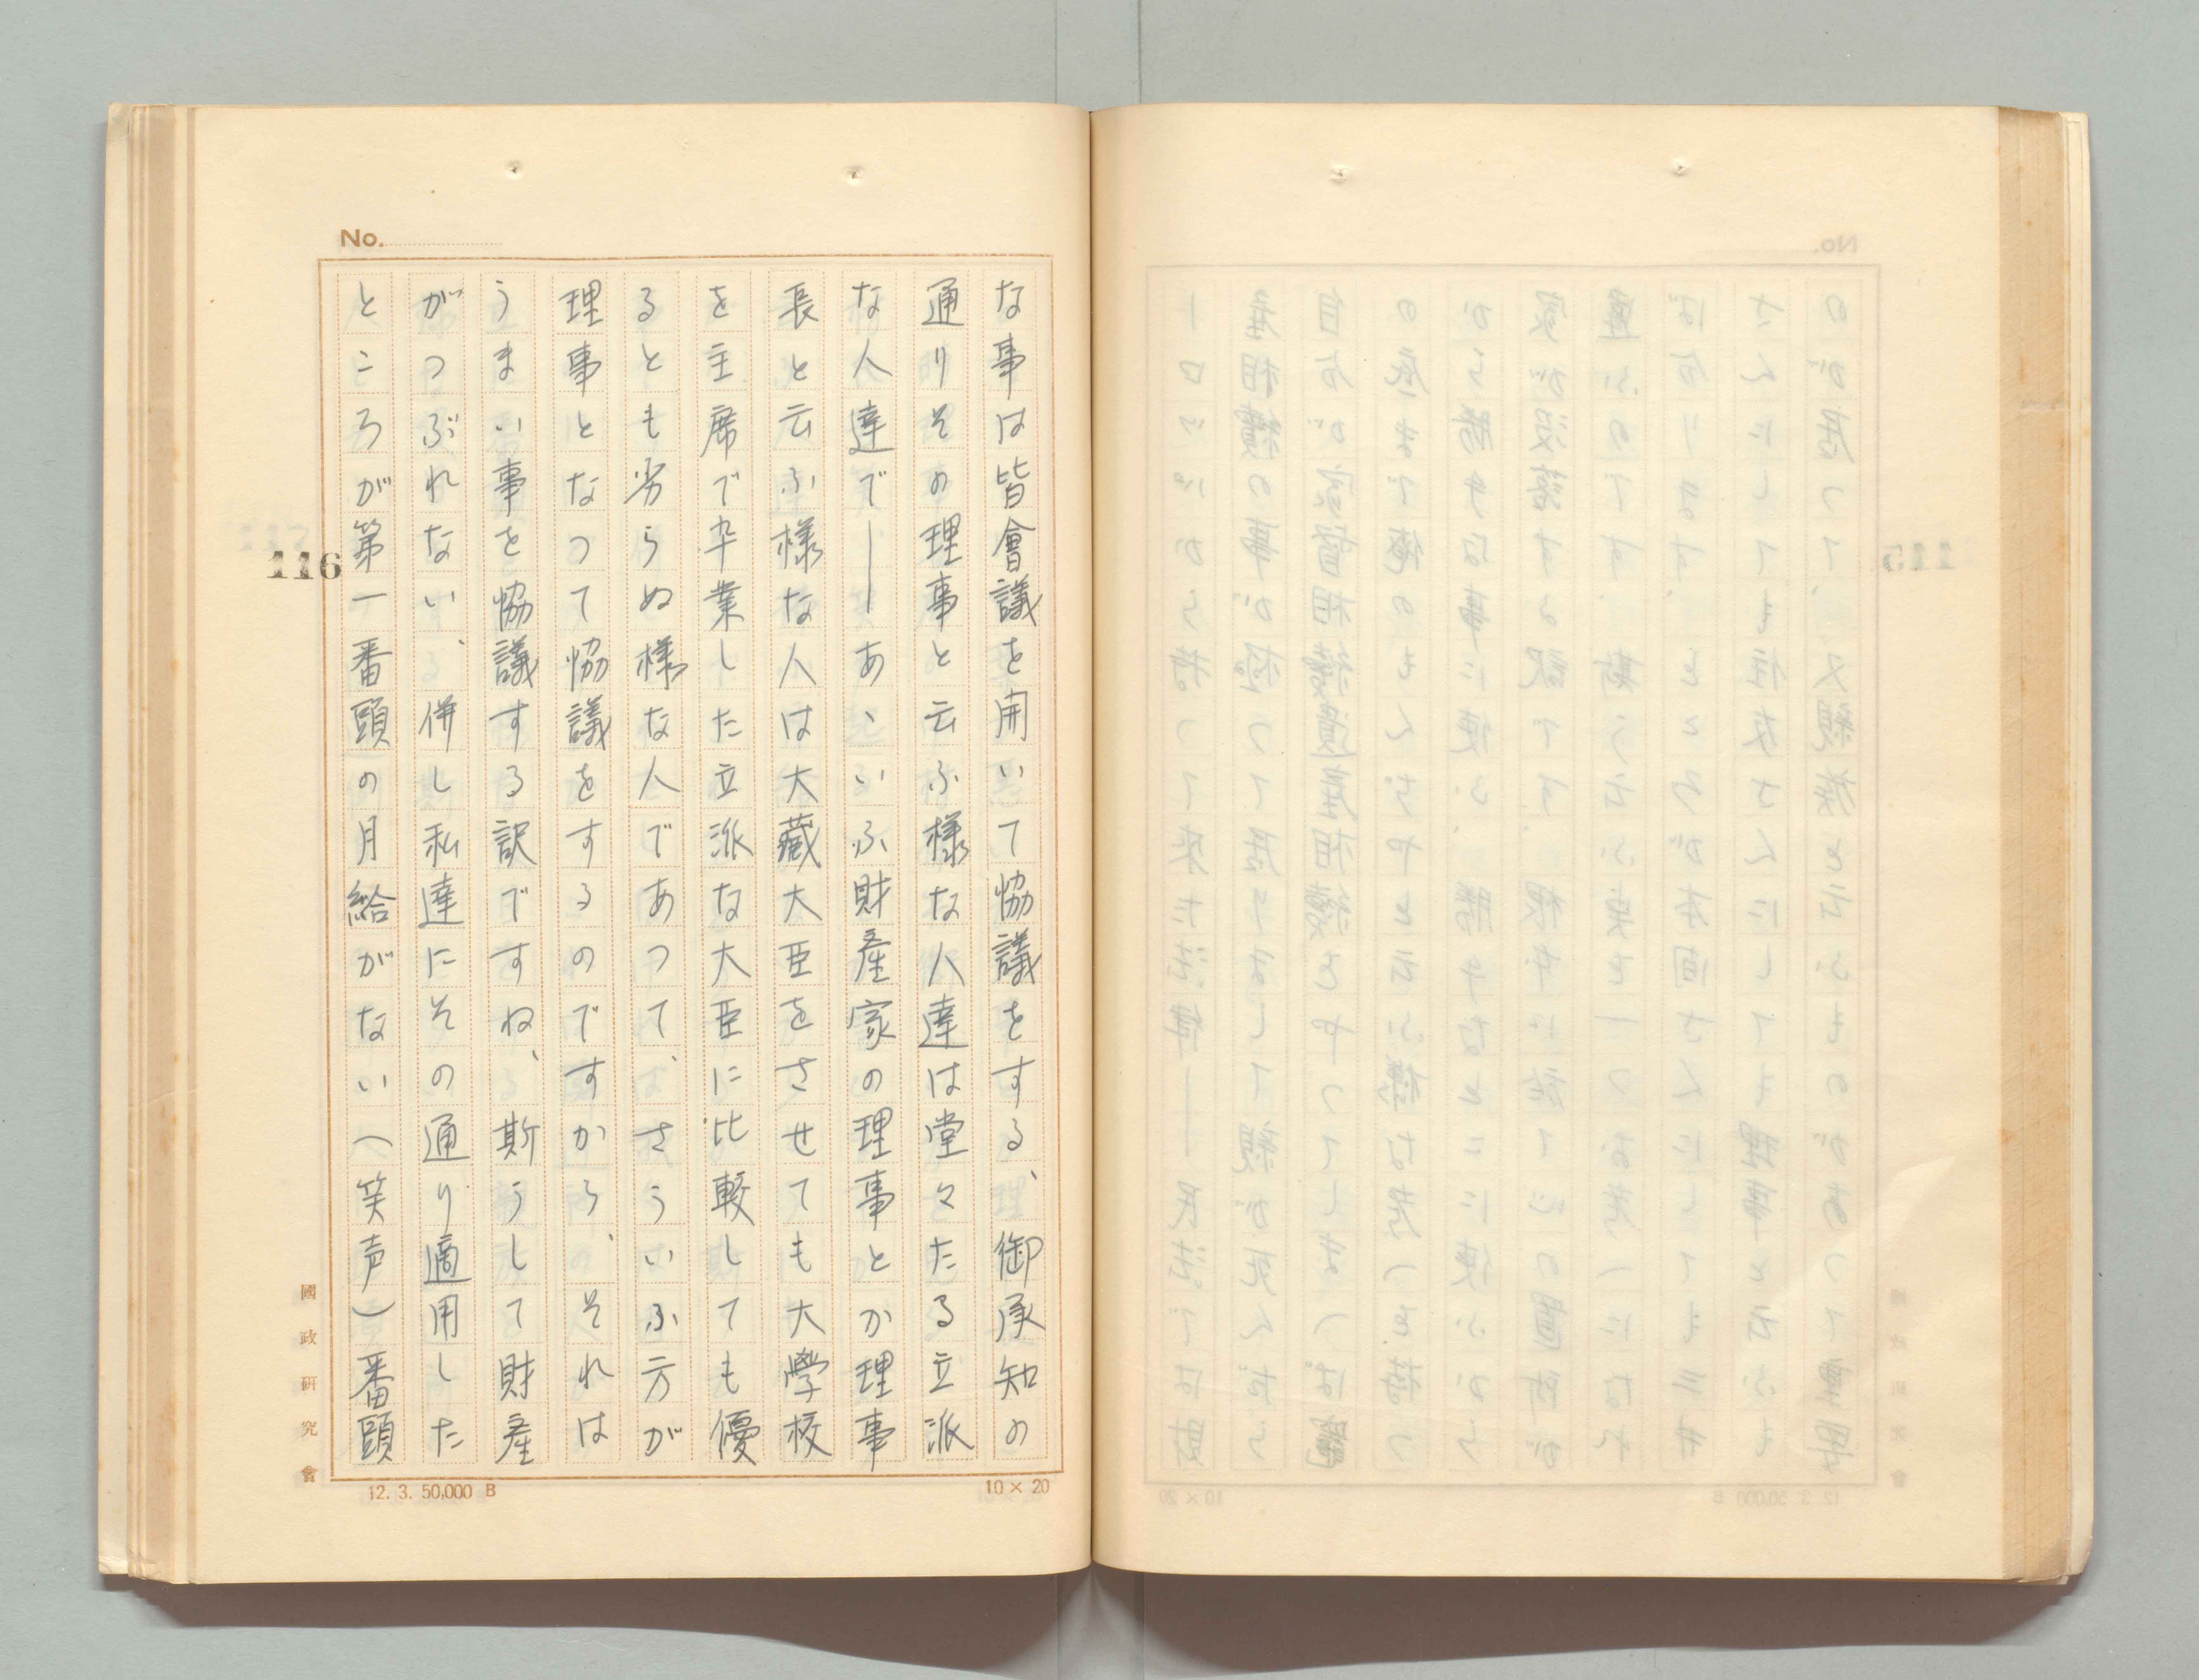 な事は皆會議を開いて協議をする、御承知の
通りその理事と云ふ様な人達は堂々たる立派
な人達で――あゝいふ財産家の理事とか理事
長と云ふ様な人は大藏大臣をさせても大學校
を主席で卒業した立派な大臣に比較しても優
るとも劣らぬ様な人であつて、さういふ方が
理事となつて協議をするのですから、それは
うまい事を協議する訳ですね、斯うして財産
がつぶれない、併し私達にその通り適用した
ところが第一番頭の月給がない(笑声)番頭
No.
116
國政研究會
12. 3. 50,000 B
10×20